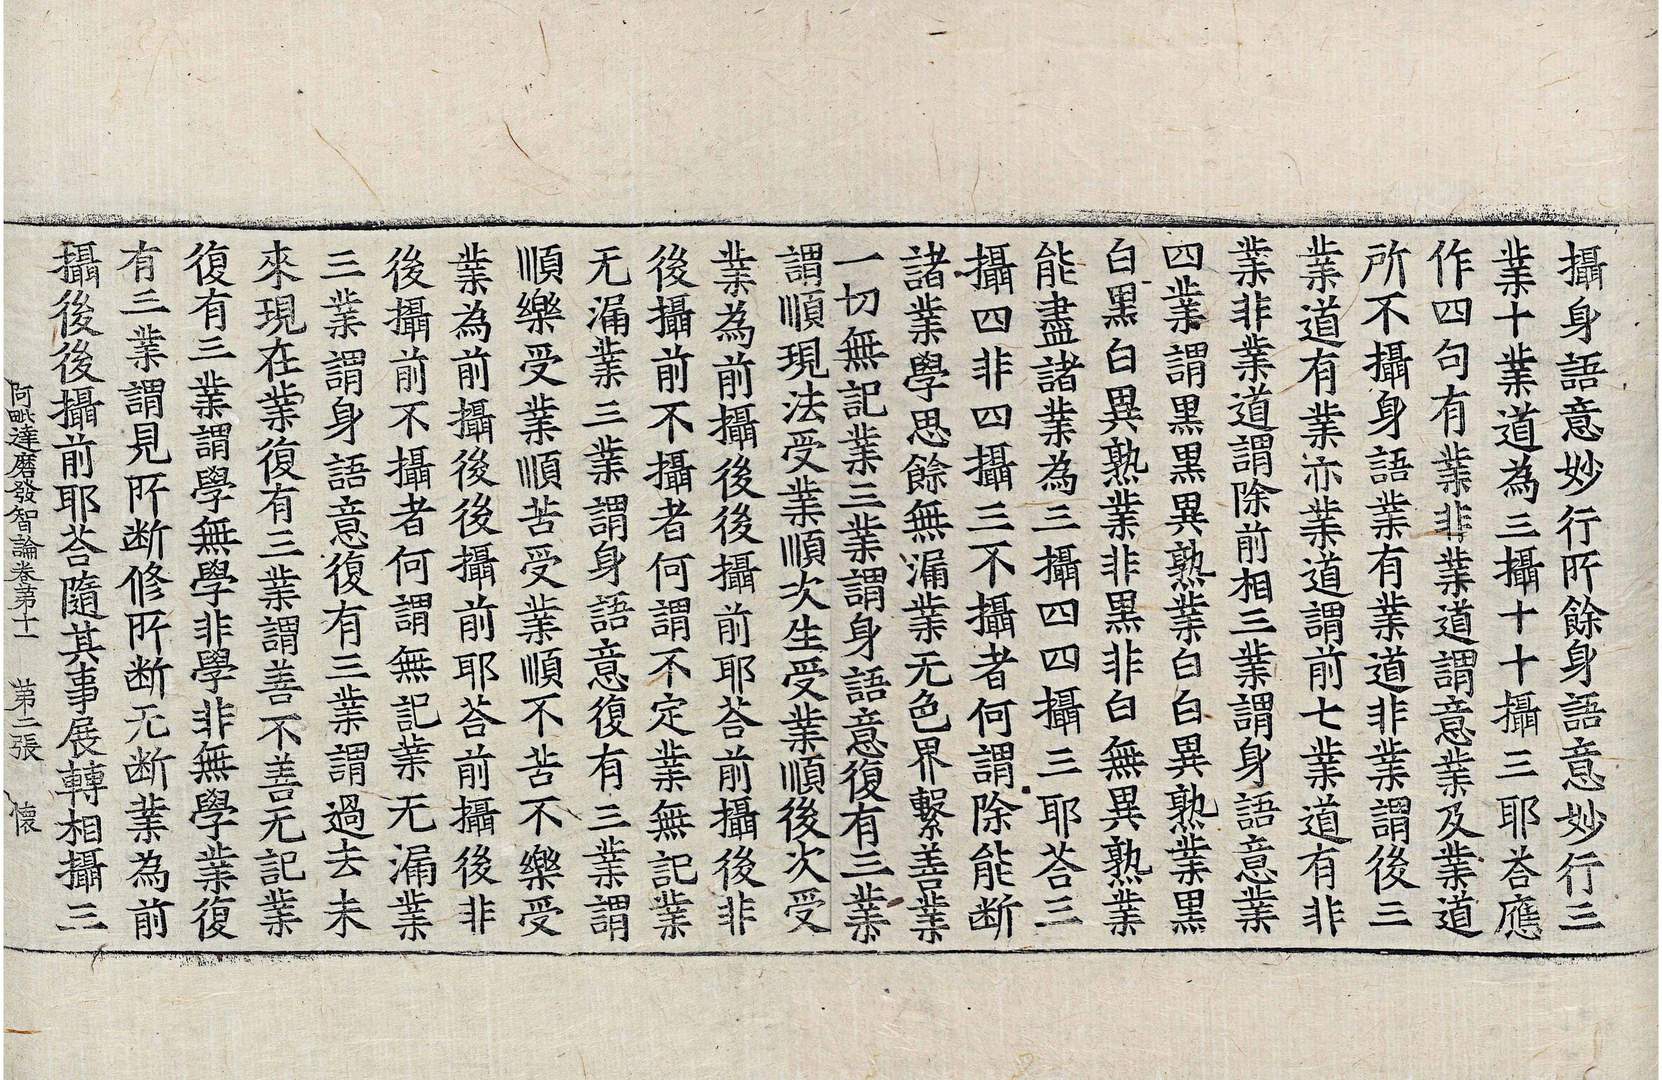 攝身語意妙行所餘身語意妙行三
業十業道為三攝十十攝三耶荅應
作四句有業非業道謂意業及業道
所不攝身語業有業道非業謂後三
業道有業亦業道謂前七業道有非
業非業道謂除前相三業謂身語意業
四業謂黑黑異熟業白白異熟業黑
白黑白異熟業非黑非白無異熟業
能盡諸業為三攝四四攝三耶荅三
攝四非四攝三不攝者何謂除能断
諸業學思餘無漏業无色界繫善業
一切無記業三業謂身語意復有三業
謂順現法受業順次生受業順後次受
業為前攝後後攝前耶荅前攝後非
後攝前不攝者何謂不定業無記業
无漏業三業謂身語意復有三業謂
順樂受業順苦受業順不苦不樂受
業為前攝後後攝前耶荅前攝後非
後攝前不攝者何謂無記業无漏業
三業謂身語意復有三業謂過去未
來現在業復有三業謂善不善无記業
復有三業謂學無學非學非無學業復
有三業謂見所断修所断无断業為前
攝後後攝前耶荅隨其事展轉相攝三
阿毗達磨發智論卷第十一 第二張 懷